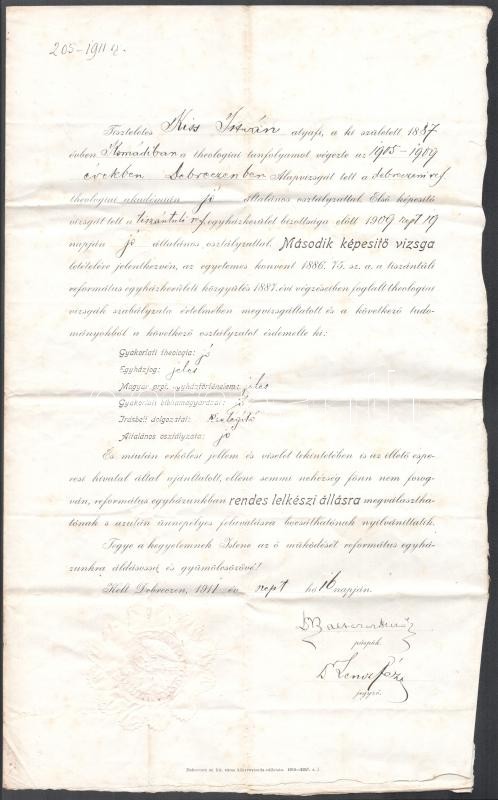 205–1911
Tiszteletes Kiss István atyafi, a ki született 1887
évben Komádiban a theologiai tanfolyamot végezte az 1905–1909
években Debreczenben Alapvizsgát tett a debreczeni ref
theologiai akadémián jó általános osztályzattal. Első képesitő
vizsgát tett a tiszántúli ref egyházkerület bizottsága előtt 1909 szept 19
napján jó általános osztályzattal. Második képesitő vizsga
letételére jelentkezvén, az egyetemes konvent 1886. 75. sz. a. a tiszántúli
református egyházkerületi közgyülés 1887. évi végzéseiben foglalt theologiai
vizsgák szabályzata értelmében megvizsgáltatott és a következő tudo-
mányokból a következő osztályzatot érdemelte ki:
Gyakorlati theologia: jó
Egyházjog: jeles
Magyar prot. egyháztörténelem: jeles
Gyakorlati bibliamagyarázat: jó
Irásbeli dolgozatai: kielégítő
Általános osztályzata: jó
És miután erkölcsi jellem és viselet tekintetében is az illető espe-
resi hivatal által ajánltatott, ellene semmi nehézség fönn nem forog-
ván, református egyházunkban rendes lelkészi állásra megválasztha-
tónak s azután ünnepélyes felavatásra bocsáthatónak nyilváníttatik.
Tegye a kegyelemnek Istene az ő működését református egyhá-
zunkra áldásossá és gyümölcsözővé!
Kelt Debreczen, 1911 év szept hó 16 napján.
püspök.
Dr Lencz Géza
jegyző.
Debreczen sz. kir. város könyvnyomda-vállalata.